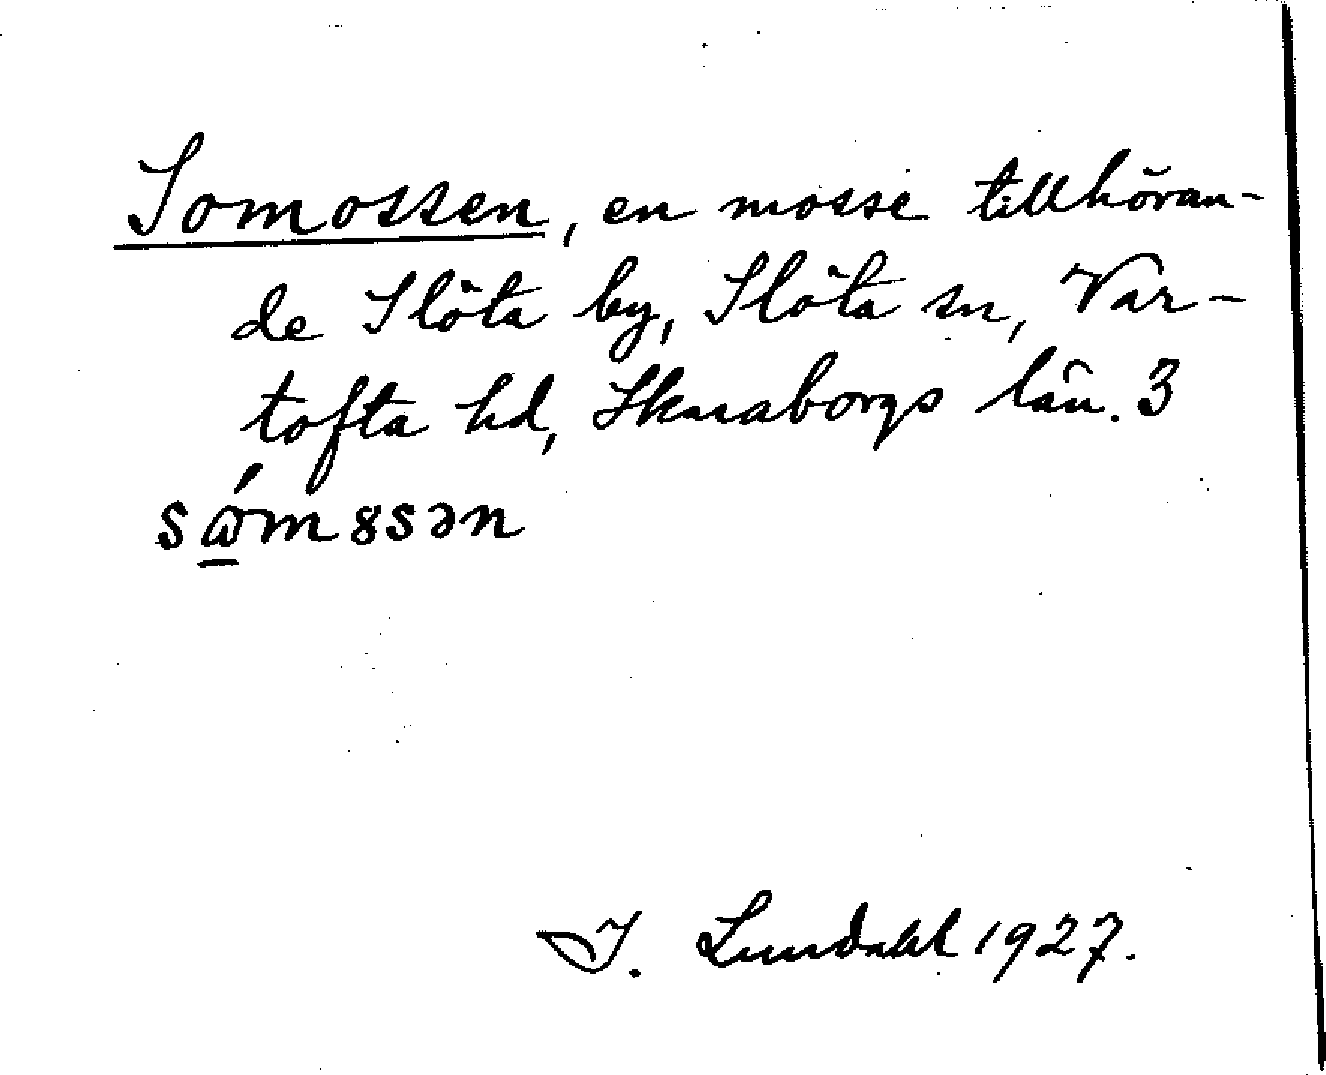 Somossen, en mosse tillhöran-
de Slöta by, Slöta sn, Var-
tofta hd, Skaraborgs län. 3
sώ̱mȣsən
I. Lundahl 1927.